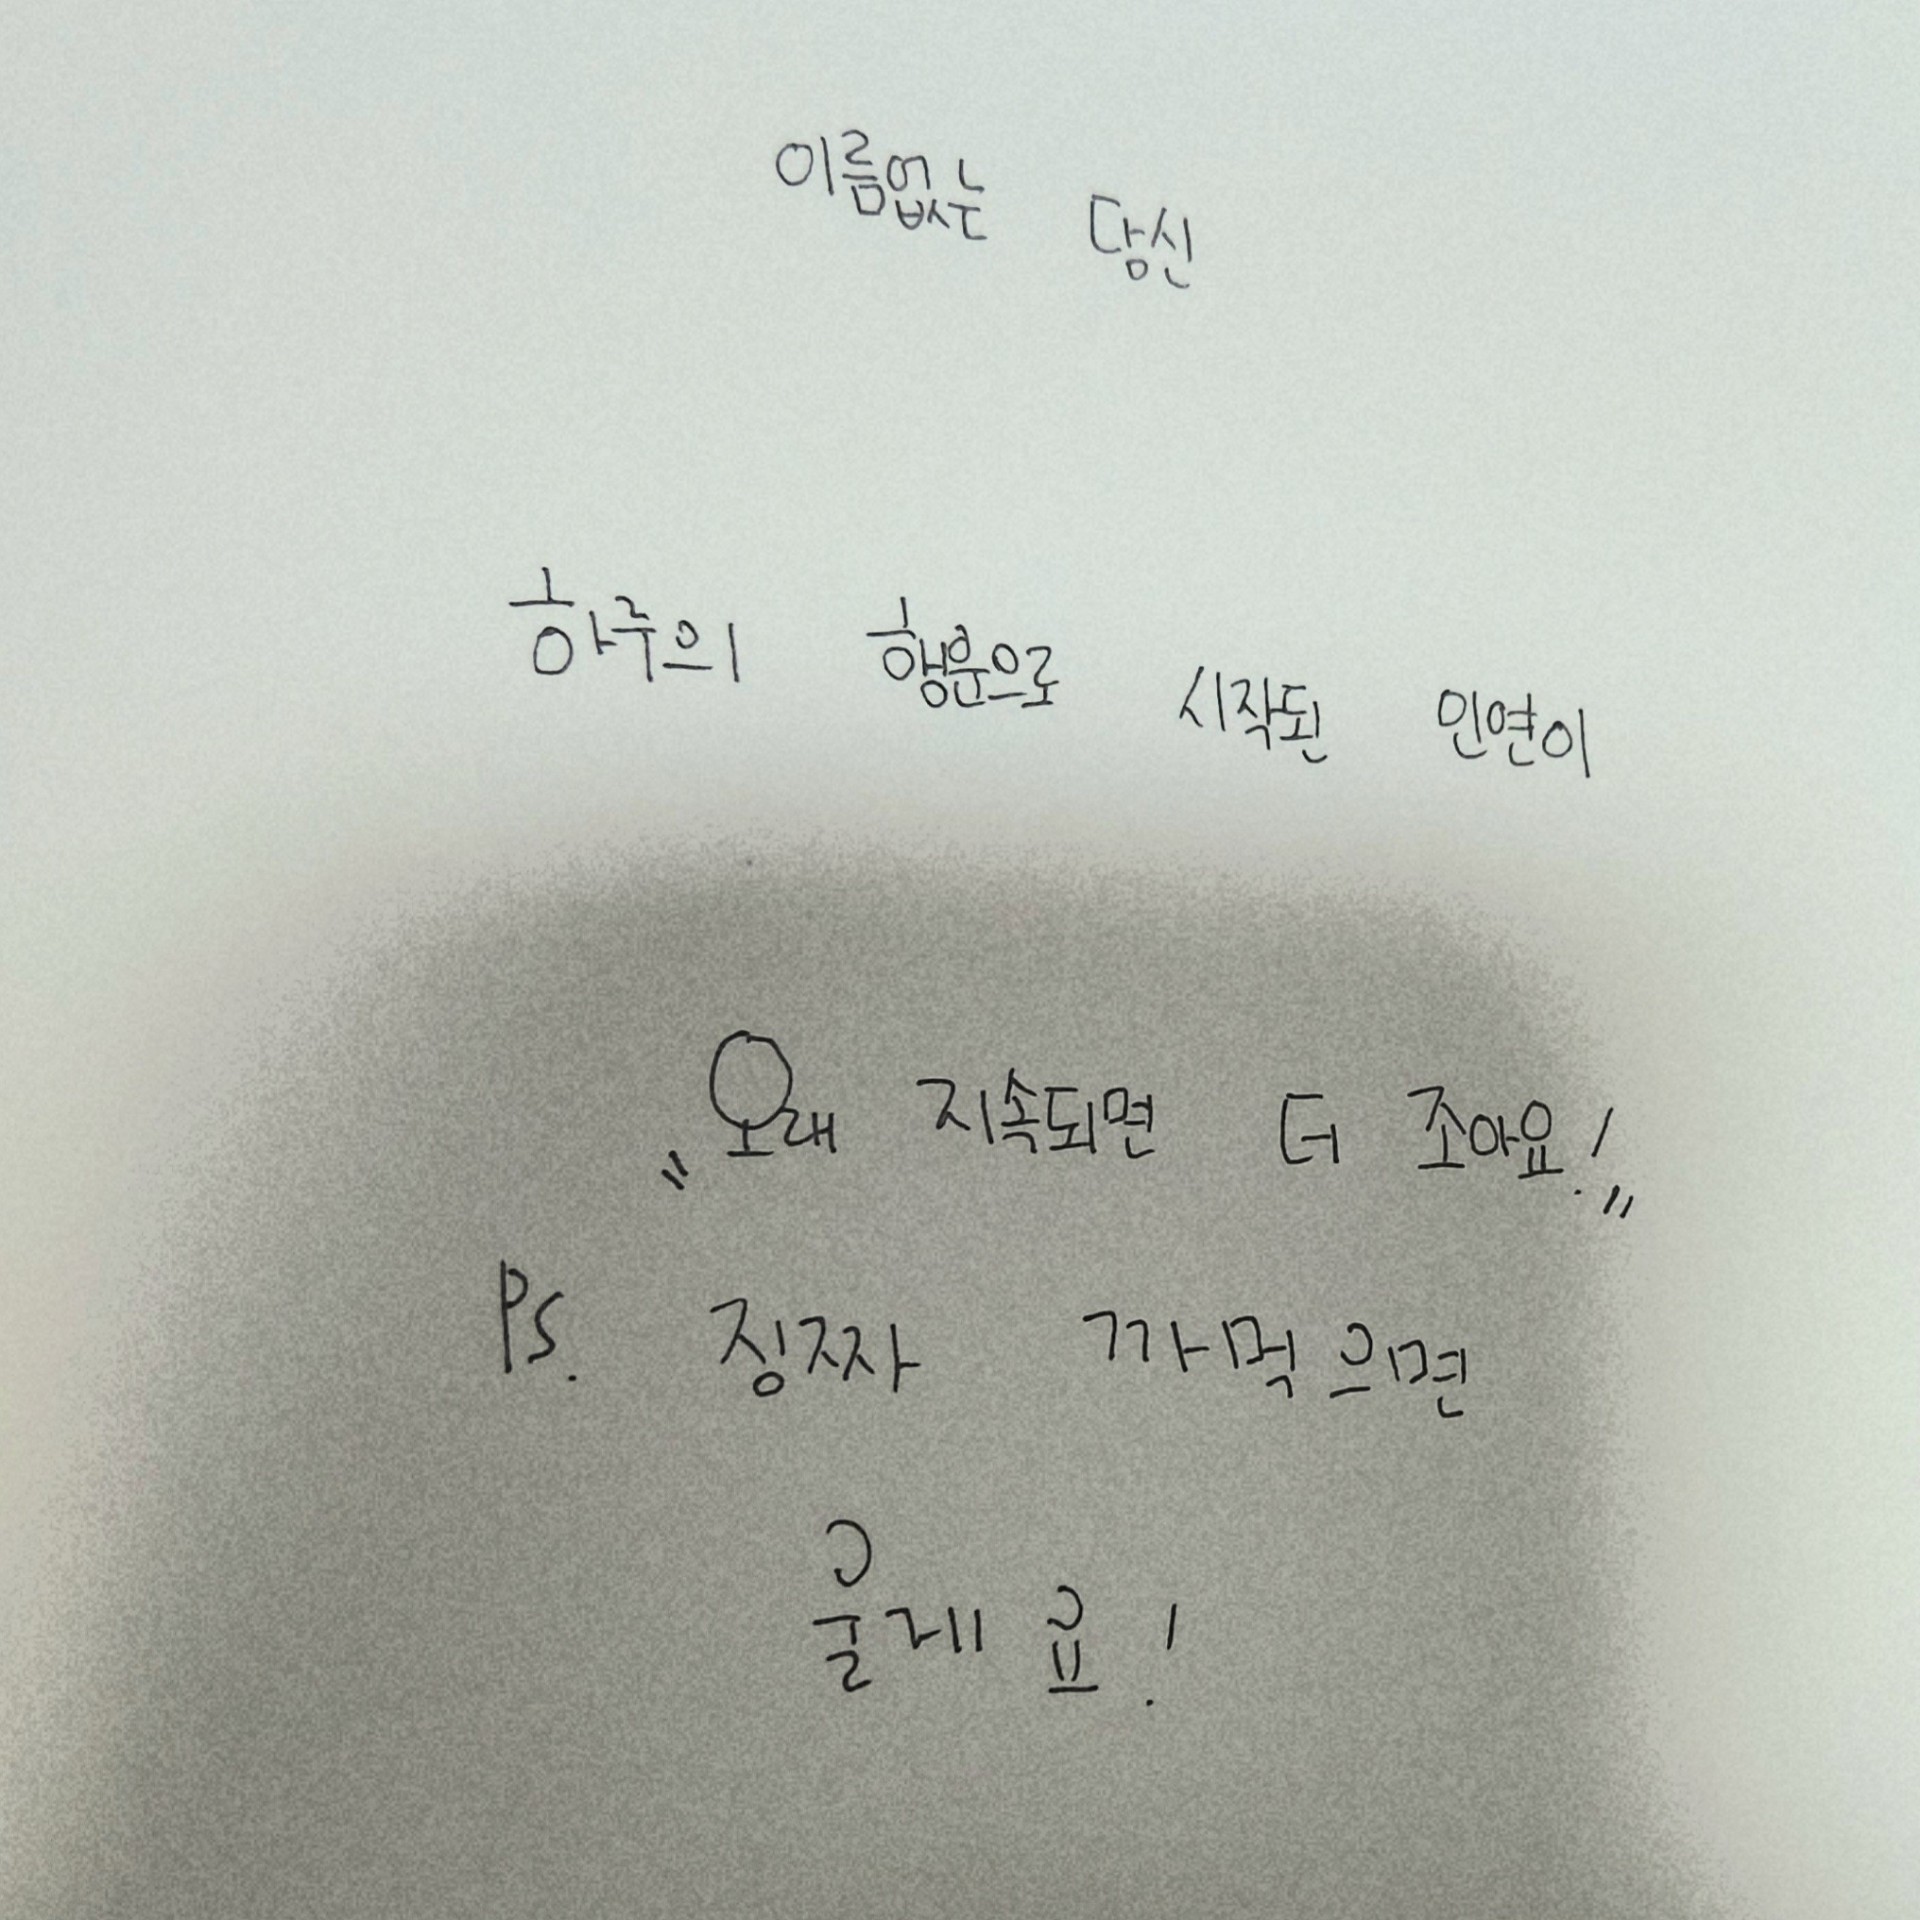 이름없는 당신
하루의 행운으로 시작된 인연이
"오래 지속되면 더 조아요!"
Ps. 징짜 까먹으면
울게요!